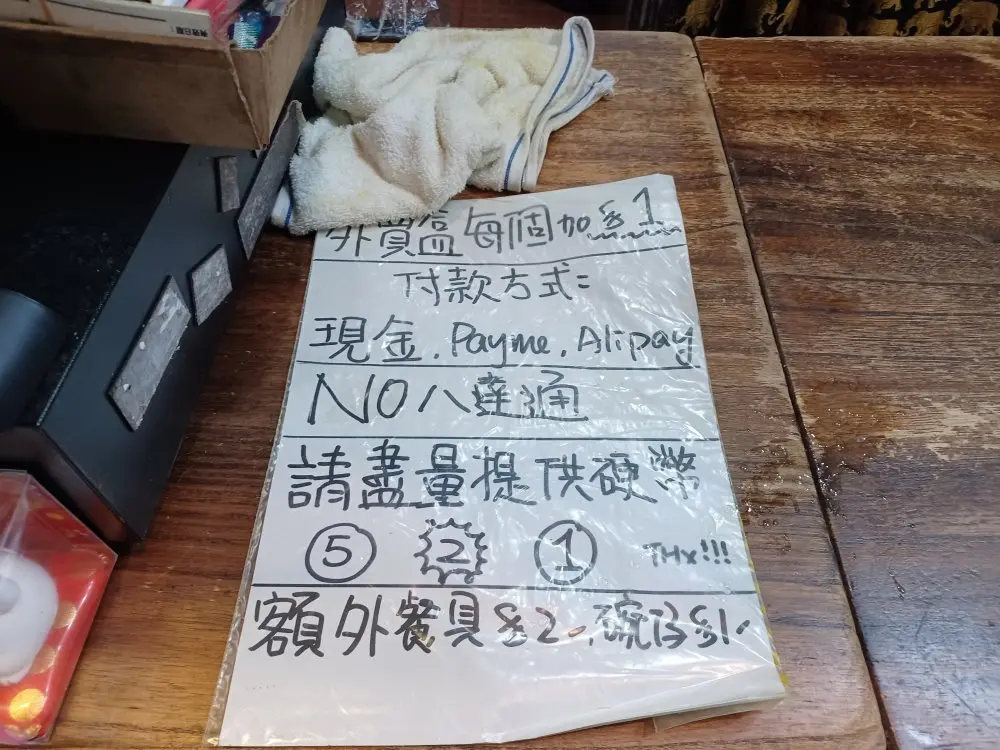 外賣盒每個加$1
付款方式:
現金. Payme. Alipay
NO 八達通
請盡量提供硬幣
5 2 1 THX!!!
額外餐具$2. 碗仔$1.